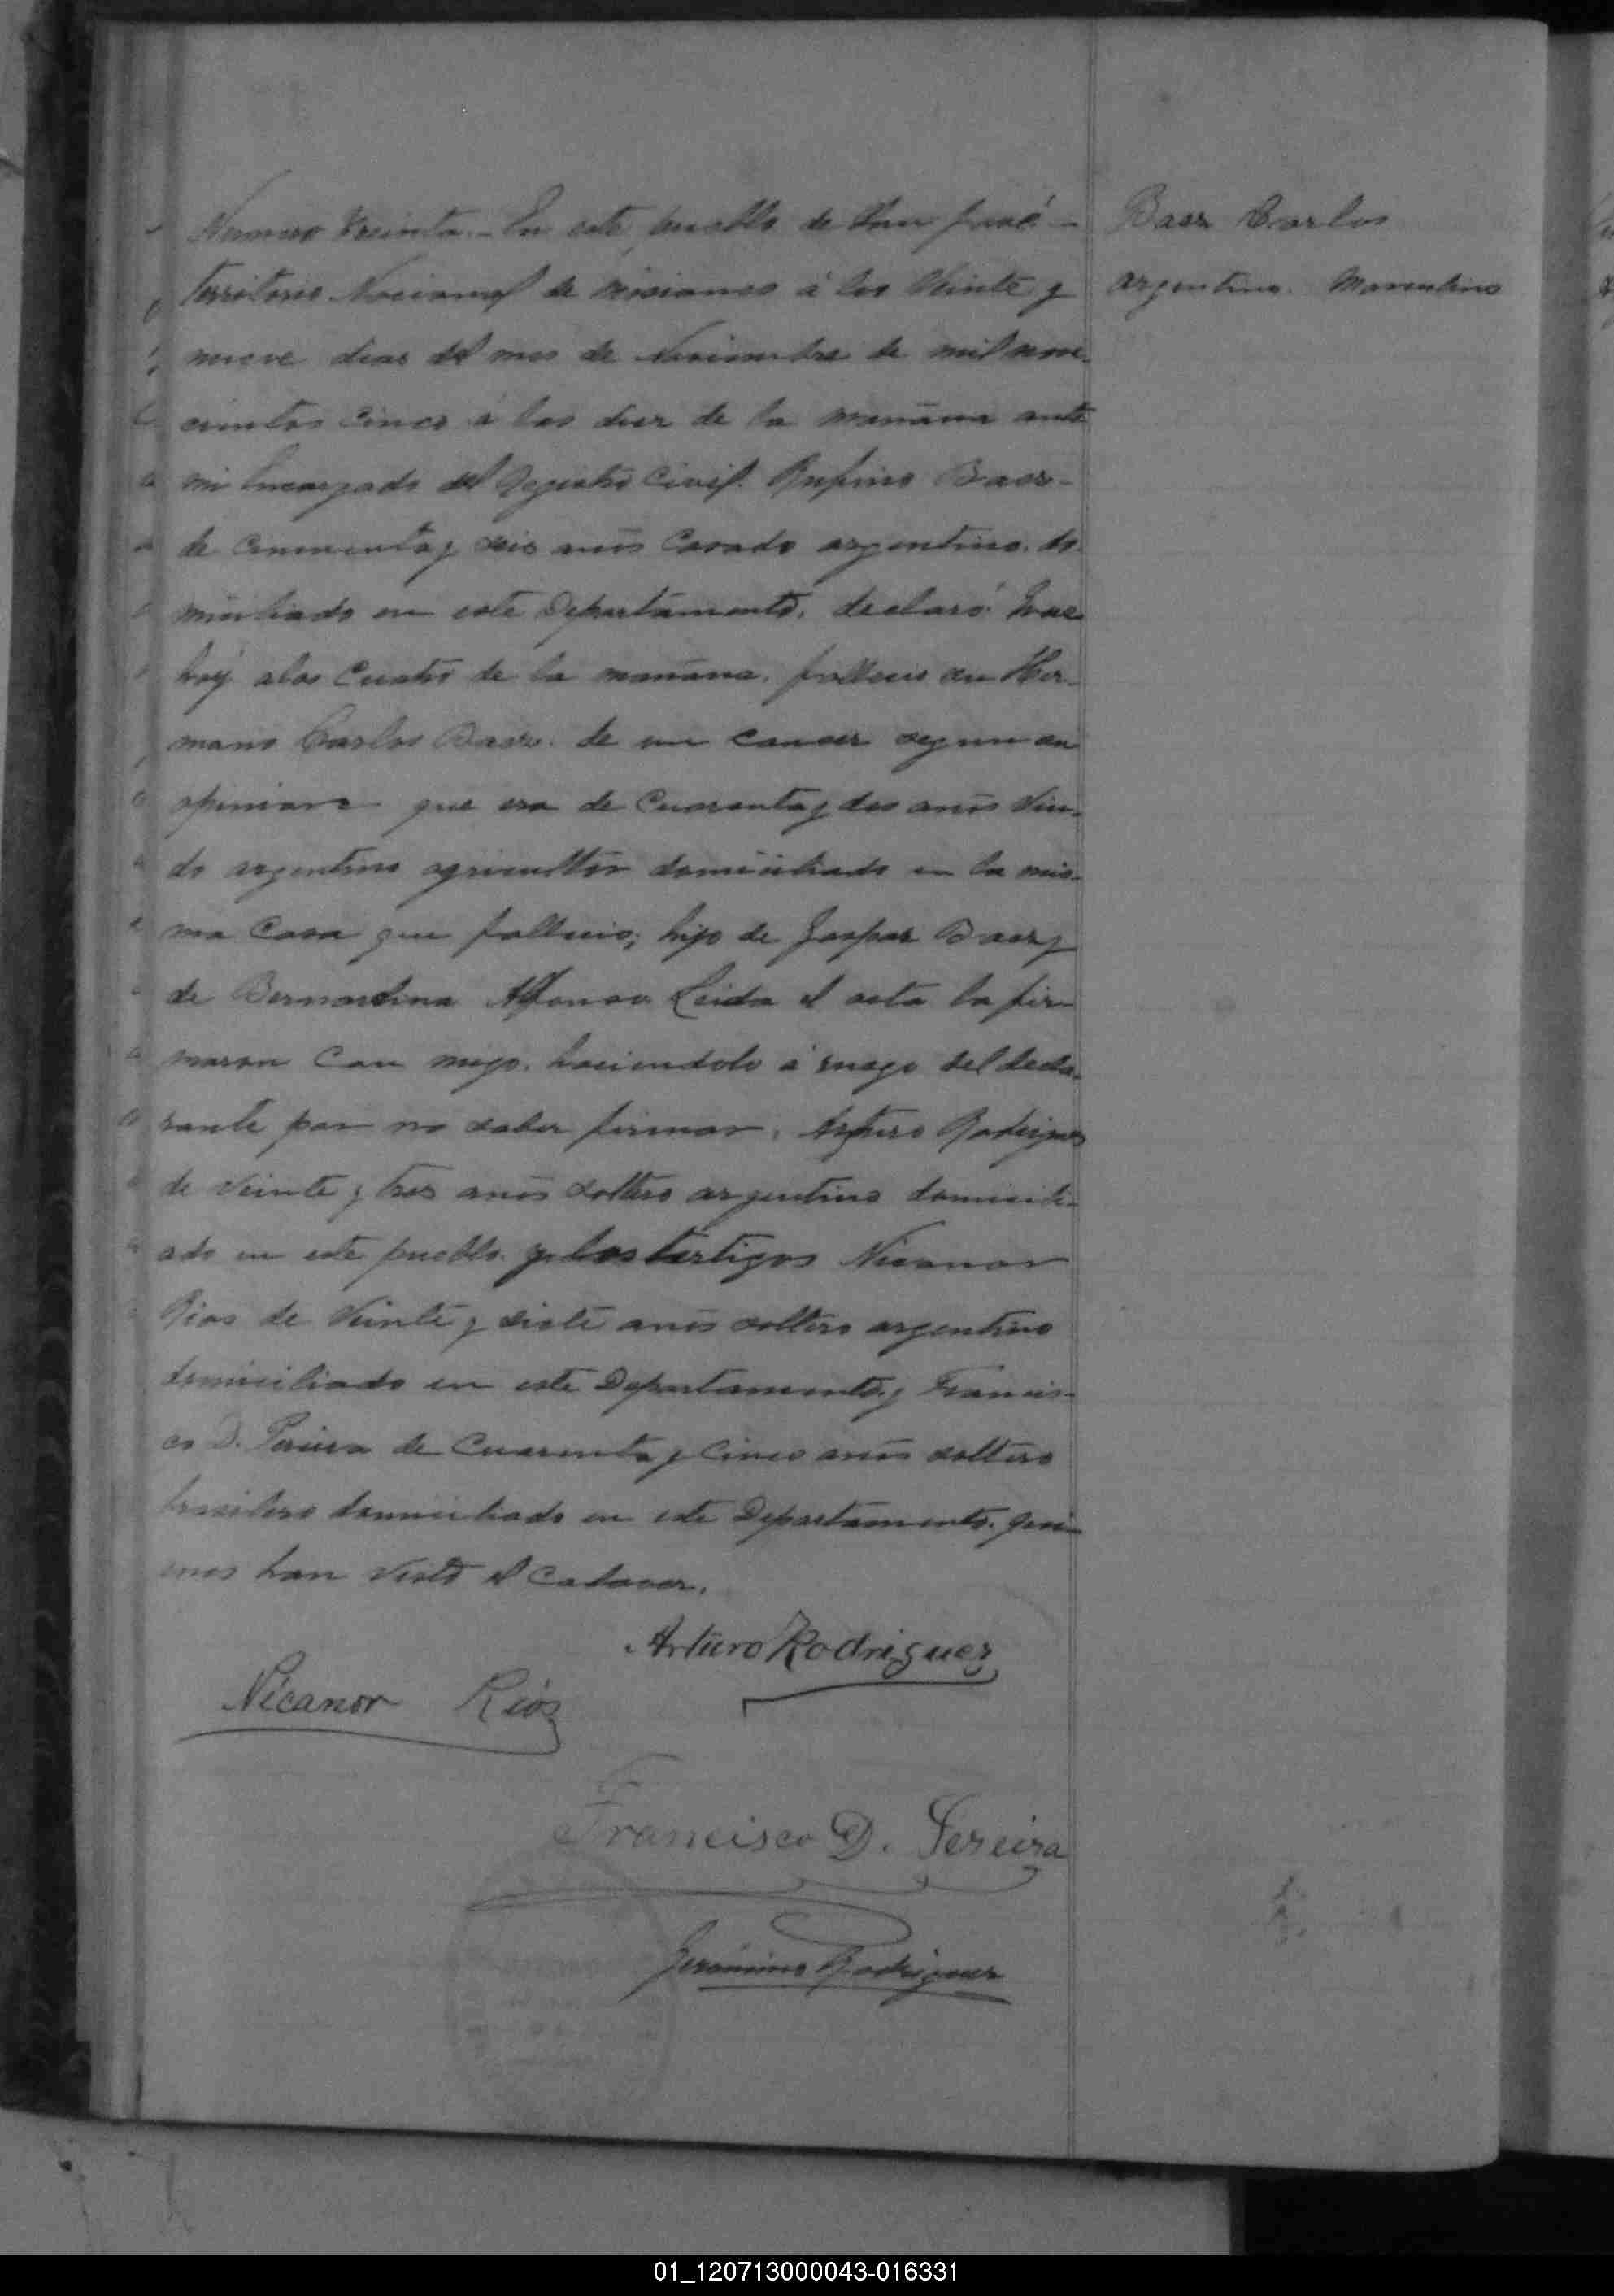 Numero treinta.- En este pueblo de San José -
territorio Nacional de misiones á los Veinte y
nueve dias del mes de Noviembre de mil nove-
cientos cinco á las diez de la mañana ante
mi Encargado del Registro Civil. Rufino Baez-
de Cincuenta y seis años Casado argentino. do-
miciliado en este Departamento. declaró: Que
hoy a las Cuatro de la mañana. fallecio su Her-
mano Carlos Baez. de un cancer segun su
opinion que era de Cuarenta y dos años Viu-
do argentino agricultor domiciliado en la mis-
ma Casa que fallecio; hijo de Gaspar Baez y
de Bernardina Alfonso. Leida el acta la fir-
maron Con migo. haciendolo á ruego del decla-
rante por no saber firmar. Arturo Rodriguez
de Veinte y tres años soltero argentino domicili-
ado en este pueblo. y los testigos Nicanor
Rios de Veinte y siete años soltero argentino
domiciliado en este Departamento y Francis-
co D. Pereira de Cuarenta y Cinco años soltero
brasilero domiciliado en este Departamento. qui-
enes han visto el Cadaver.
Arturo Rodriguez
Nicanor Rios
Francisco D. Pereira
Jeronimo Rodriguez
Baez Carlos
argentino. Masculino
01_120713000043-016331